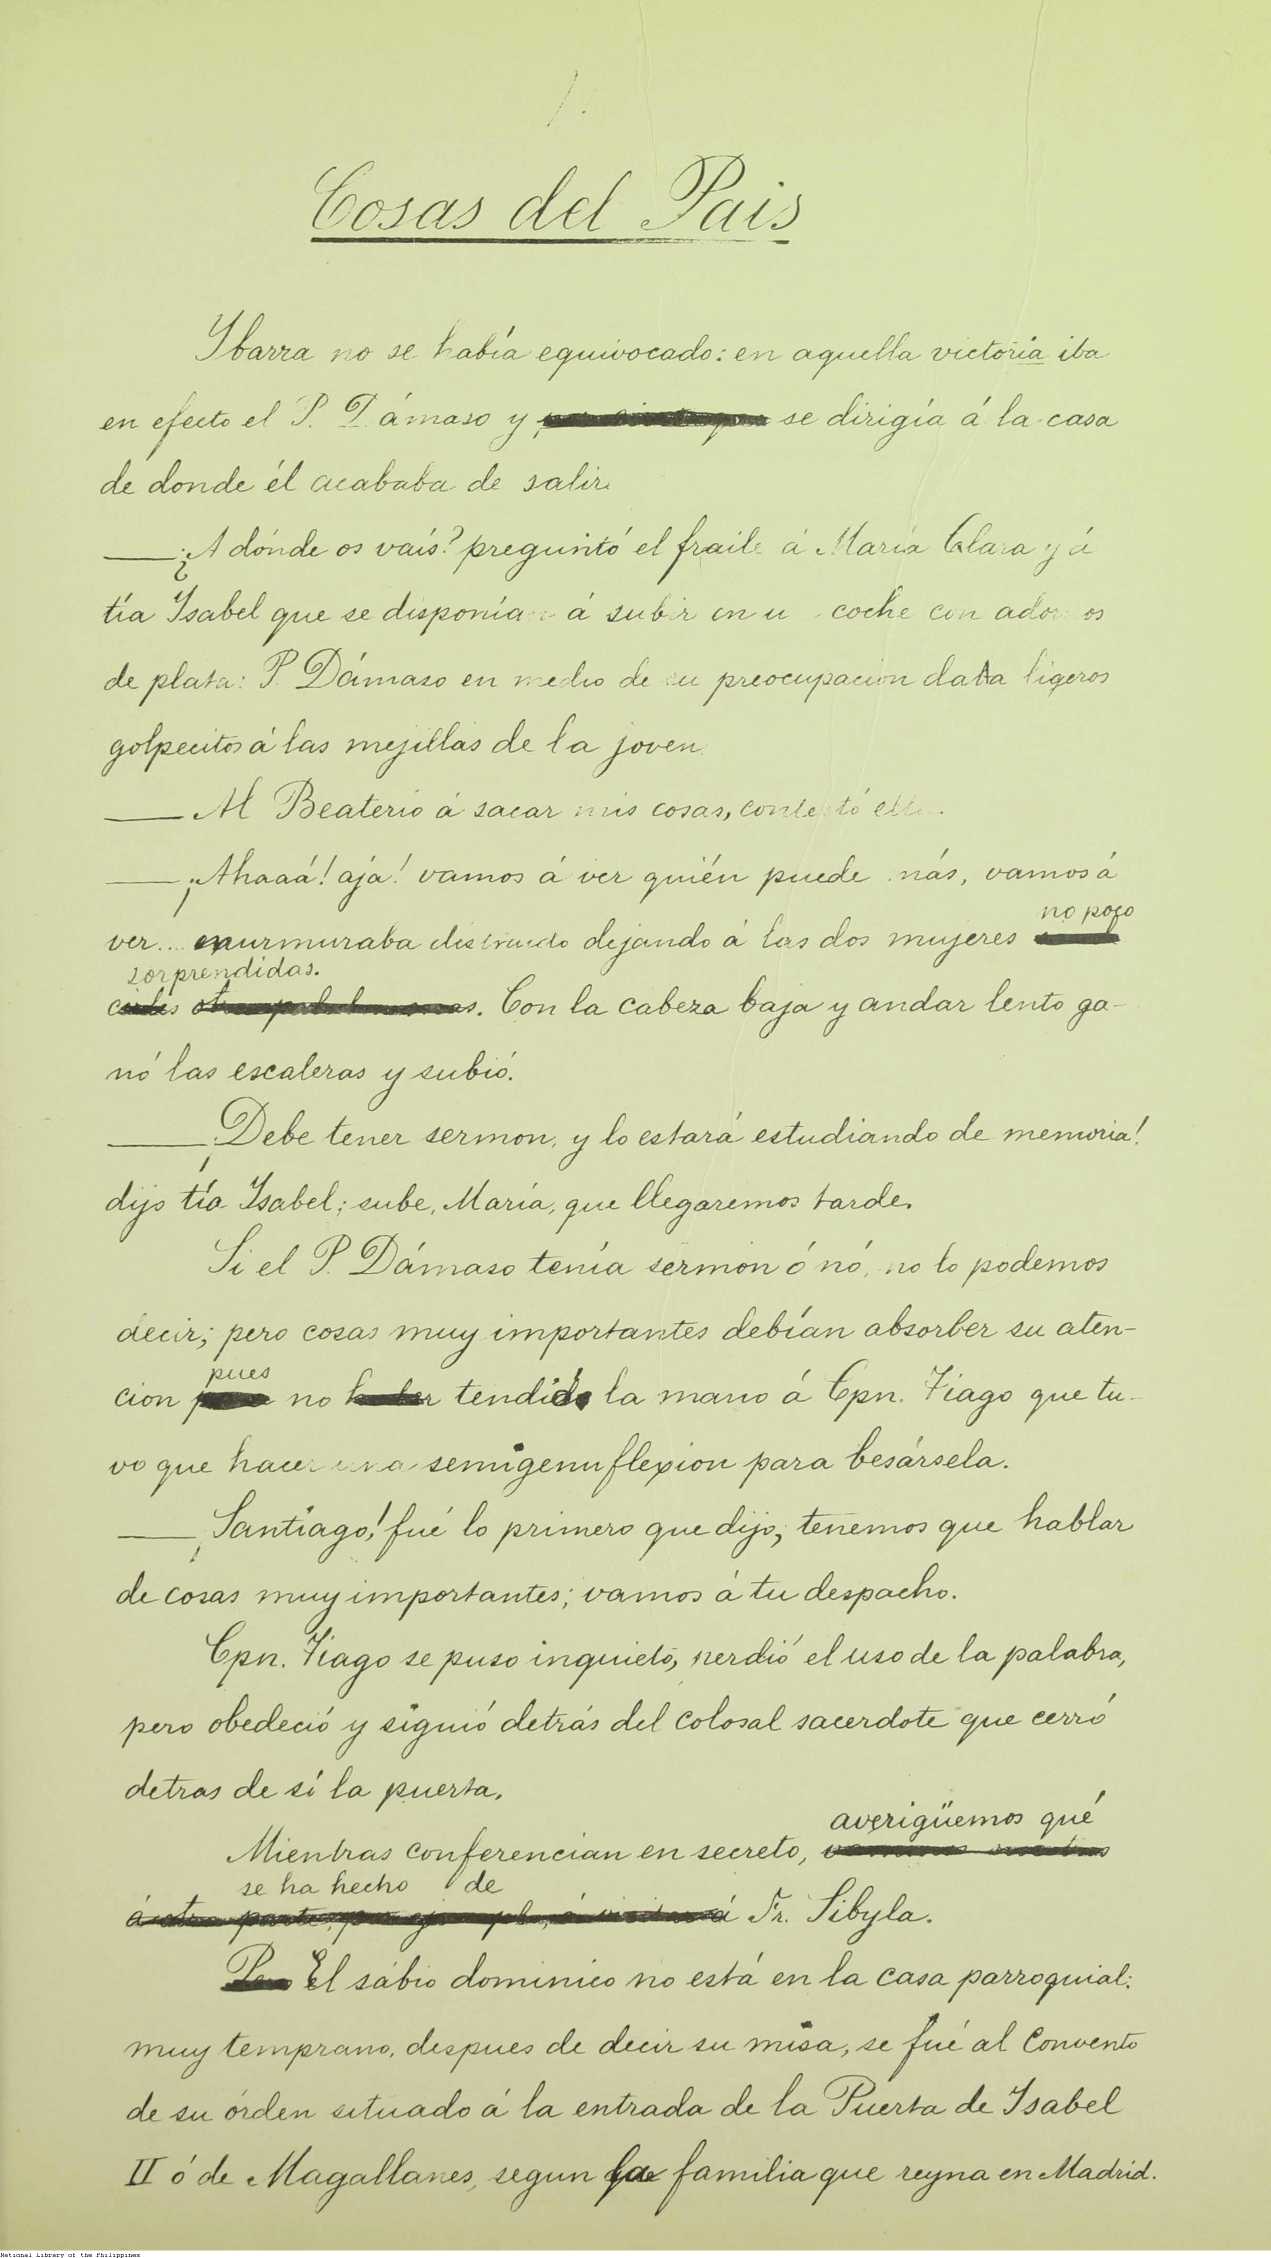 1.
Cosas del Pais
Ybarra no se había equivocado: en aquella victoria iba
en efecto el P. Dámaso y se dirigía á la casa
de donde él acababa de salir.
—¿A dónde os vais? preguntó el fraile á María Clara y á
tía Isabel que se disponían á subir en u coche con adornos
de plata: P. Dámaso en medio de su preocupacion daba ligeros
golpecitos á las mejillas de la joven.
— Al Beaterio á sacar mis cosas, contestó ella.
—¡Ahaaá! ajá! vamos á ver quién puede más, vamos á
no poco
ver... murmuraba distraido dejando á las dos mujeres
sorprendidas.
Con la cabeza baja y andar lento ga-
nó las escaleras y subió.
—¡Debe tener sermon, y lo estará estudiando de memoria!
dijo tía Isabel; sube, María, que llegaremos tarde.
Si el P. Dámaso tenía sermon ó nó, no lo podemos
decir; pero cosas muy importantes debían absorber su aten-
pues
cion no haber tendido la mano á Cpn. Tiago que tu-
vo que hacer una semigenuflexion para besársela.
—¡Santiago! fué lo primero que dijo, tenemos que hablar
de cosas muy importantes; vamos á tu despacho.
Cpn. Tiago se puso inquieto, perdió el uso de la palabra,
pero obedeció y siguió detrás del colosal sacerdote que cerró
detras de sí la puerta.
averigüemos qué
Mientras conferencian en secreto,
se ha hecho de
á otra parte, por ejemplo, á visitar á Fr. Sibyla.
Pero El sábio dominico no está en la casa parroquial:
muy temprano, despues de decir su misa, se fué al Convento
de su órden situado á la entrada de la Puerta de Isabel
II ó de Magallanes, segun la familia que reyna en Madrid.
National Library of the Philippines